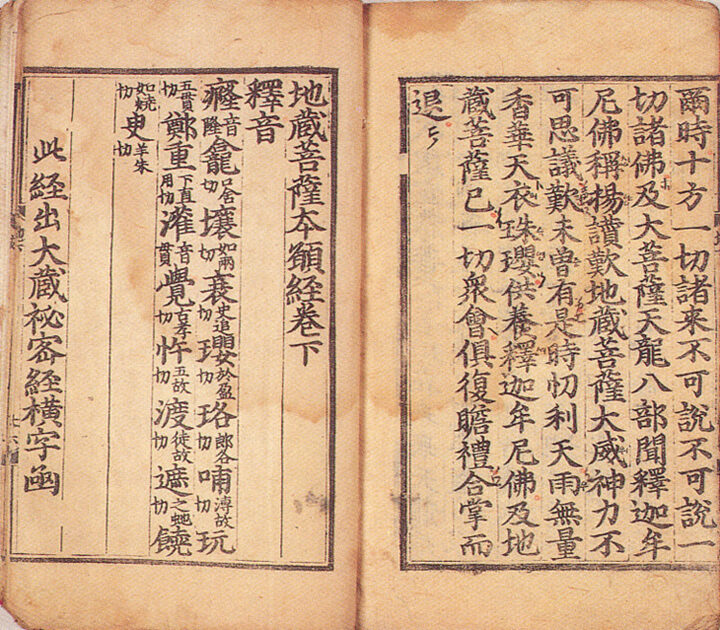 爾時十方一切諸來不可說不可說一
切諸佛及大菩薩天龍八部聞釋迦牟
尼佛稱揚讃歎地蔵菩薩大威神力不
可思議歎未曽有是時忉利天雨無量
香華天衣珠瓔供養釋迦牟尼佛及地
蔵菩薩已一切衆會俱復瞻禮合掌而
退
地蔵菩薩本願經卷下
釋音
癃音隆龕口含切壤如兩切衰史追切瓔於盈切珞郎各切哺溥故切玩
五貫切鄭重下直用切灌音貫覺古孝切忤五故切渡徒故切遮之虵切饒
如燒切臾羊朱切
此経出大蔵祕密経橫字凾